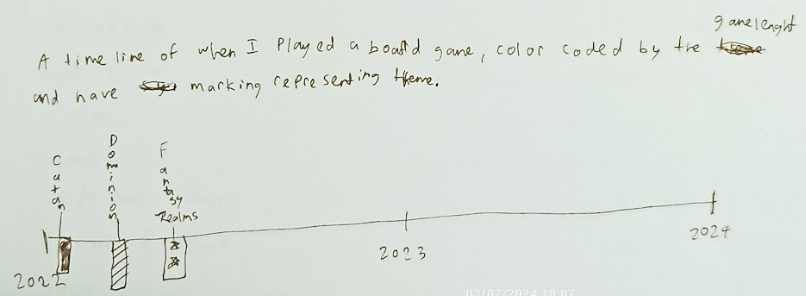 gamelenght
A time line of when I played a board game, color coded by the
and have marking representing theme.
Catan
Dominion
Fantasy Realms
2022
2023
2024
03/07/2024 18:07